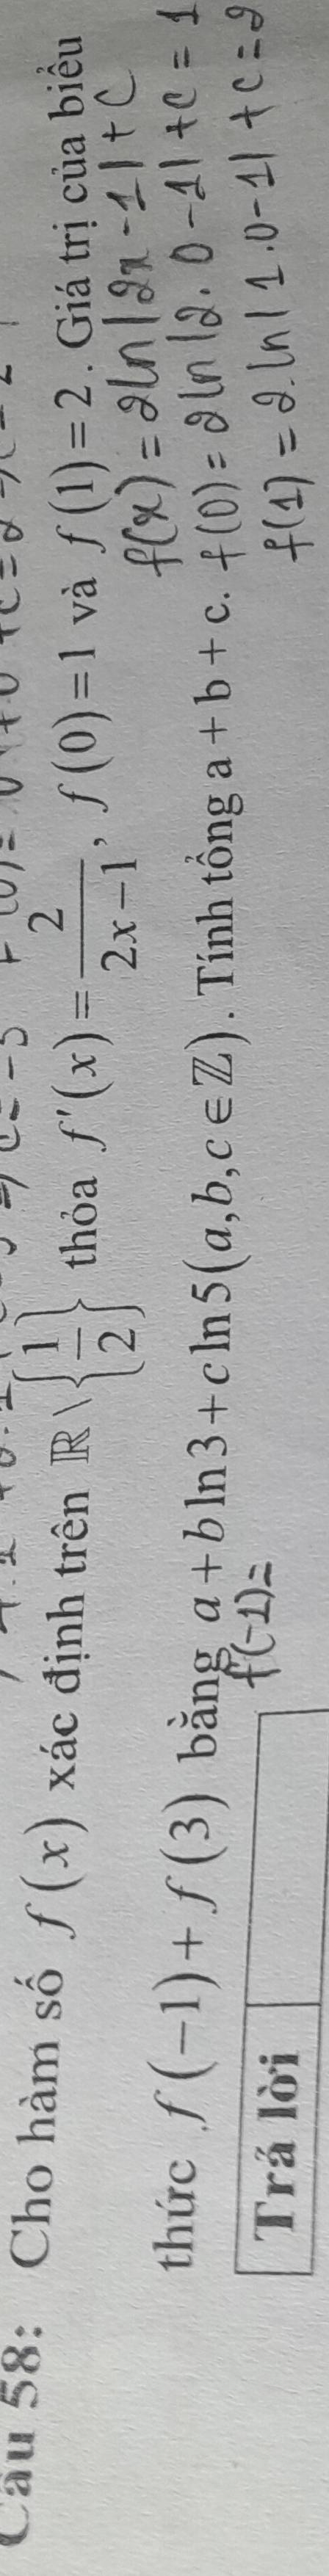 Câu 58: Cho hàm số f(x) xác định trên ℝ \ {1/2} thỏa f'(x) = 2/(2x−1), f(0) = 1 và f(1) = 2. Giá trị của biểu
f(x) = 2ln|2x−1| + C
thức f(−1) + f(3) bằng a + b ln3 + c ln5 (a,b,c ∈ ℤ). Tính tổng a + b + c. f(0) = 2ln|2.0−1| + C = 1
f(−1)=
f(1) = 2.ln|1.0−1| + C = 2
Trả lời